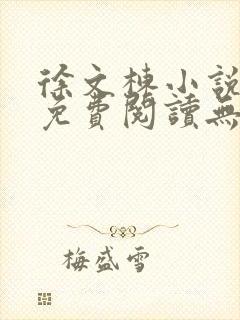 徐文棟小說
免費閱讀無
梅盛雪